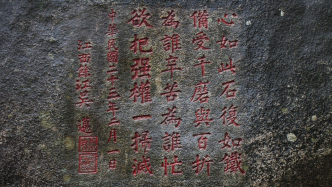 心如此石復如鐵
備受千磨與百折
為誰辛苦為誰忙
欲把强權一掃滅
中華民國二十三年六月一日
江西